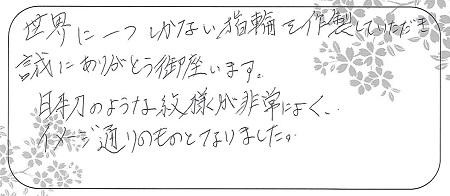 世界に一つしかない指輪を作製していただき
誠にありがとう御座います。
日本刀のような紋様が非常によく、
イメージ通りのものとなりました。